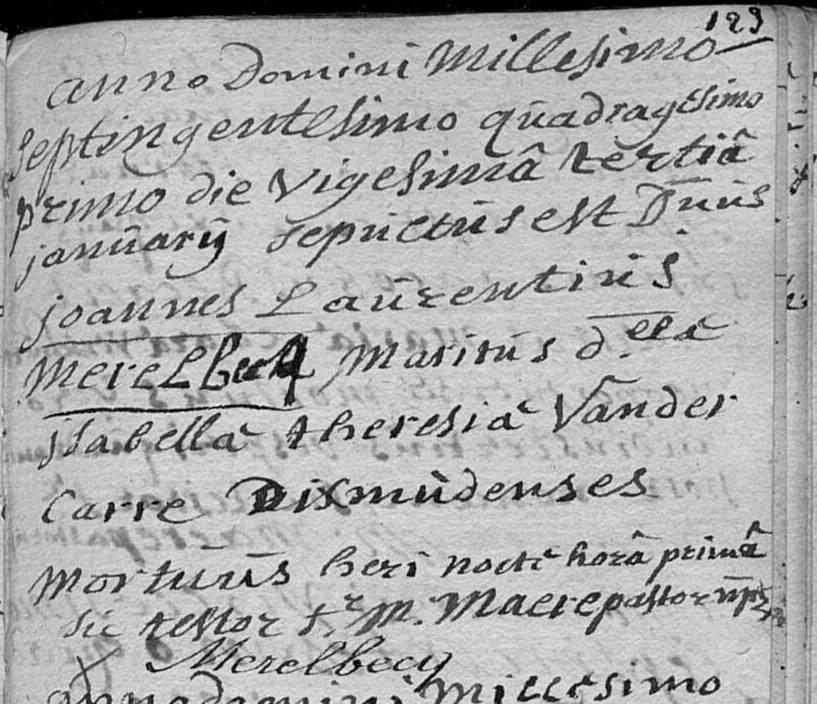 123
anno Domini Millesimo
septingentesimo quadragesimo
primo die vigesimâ tertiâ
januarij sepultus est Dnus
joannes Laurentius
Merelbeck Maritus d.ella
jsabella theresia Vander
Carre Dixmudenses
mortuus heri nocte horâ primâ
sic testor f.r M. Macre pastor
Merelbecq
anno domini Millesimo